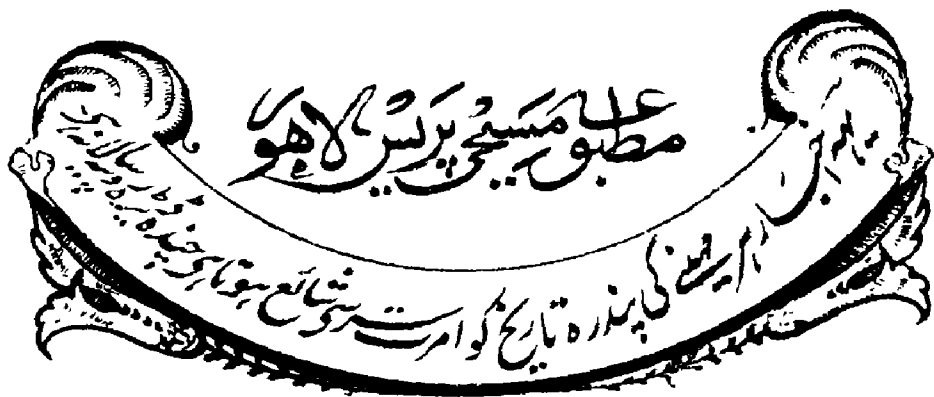 مطبوعہ مسیحی پریس لاہور
یہ رسالہ ہر مہینے کی پندرہ تاریخ کو امرت سر سے شائع ہوتا ہی چندہ ڈیڑھ روپیہ سالانہ